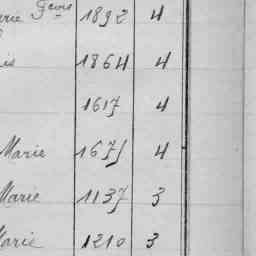 arie Fcois 1892 4
is 1864 4
1617 4
Marie 1671 4
Marie 1137 3
Marie 1210 3